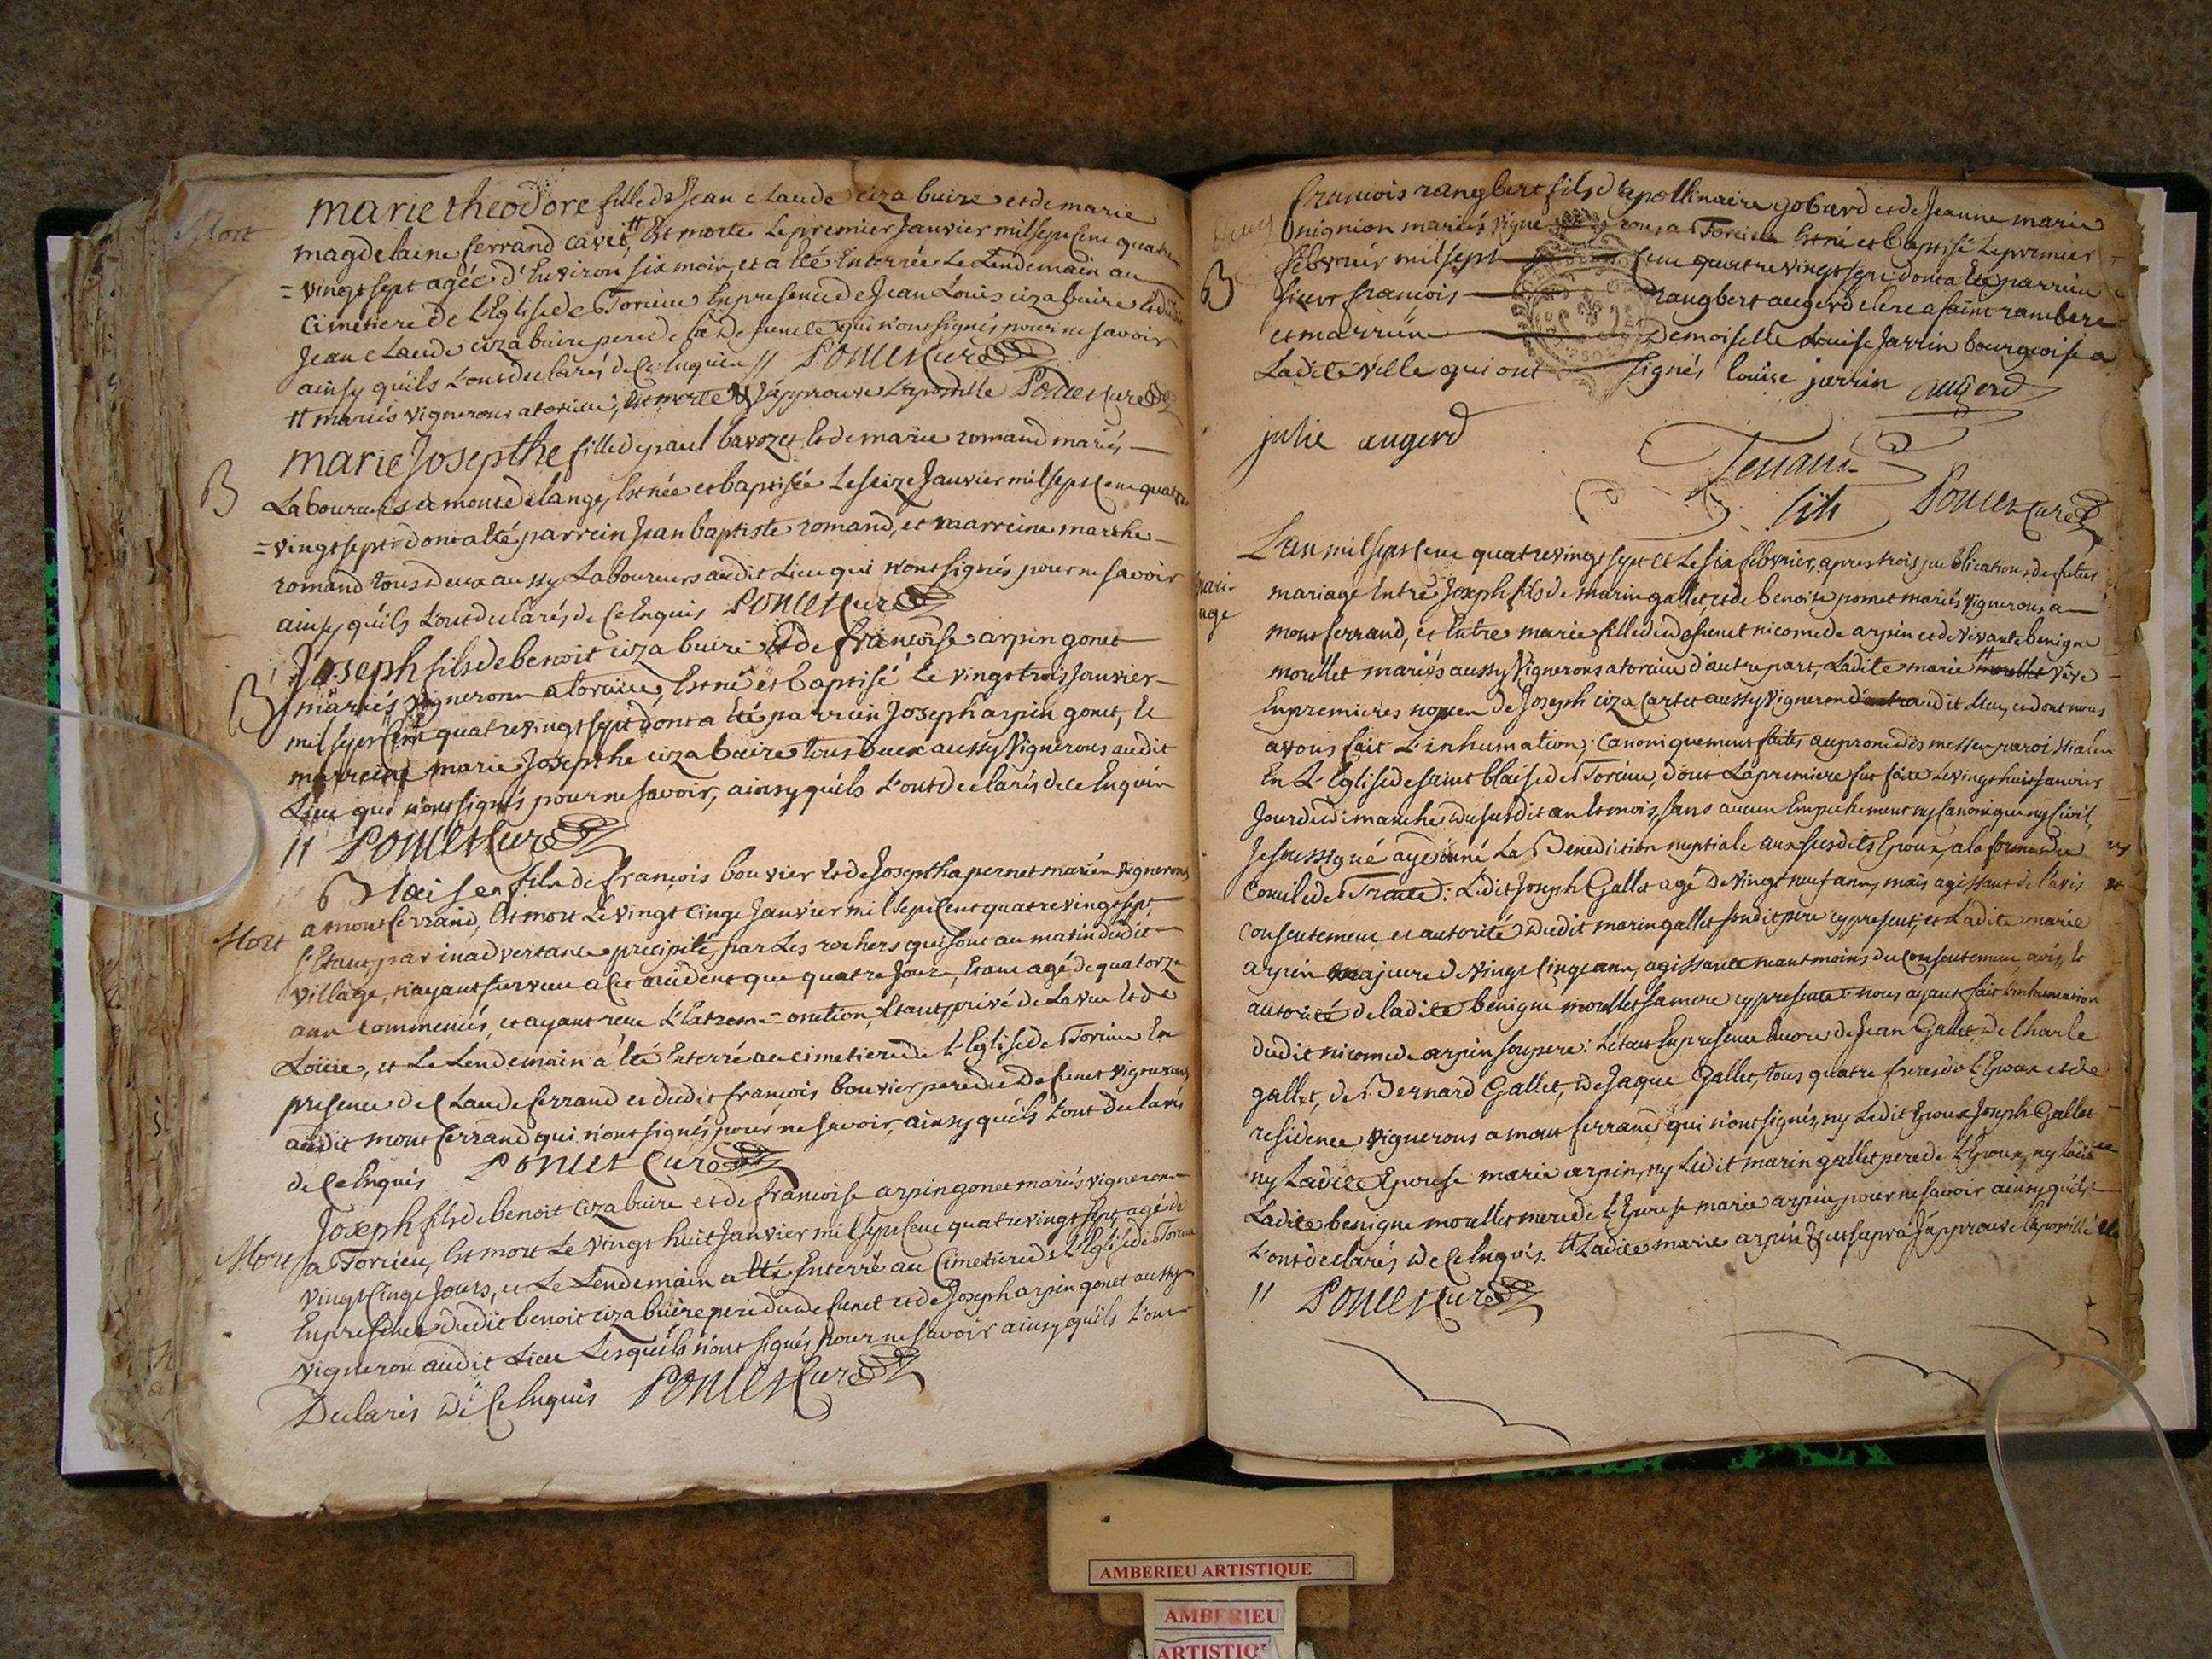 Mort
marie theodore fille de Jean Claude ciza buire et de marie
magdelaine ferrand cavet, # Est morte Le premier Janvier mil sept Cent quatre
= vingt sept agée d'Environ six mois, et a Eté Enterrée Le Lendemain au
Cimetiere de L'Eglise de Torcieu En presence de Jean Louis ciza buire et dudit
Jean Claude ciza buire pere de la defuncte qui n'ont signés pour ne savoir
ainsy qu'ils L'ont declarés de Ce Enquis // Poncet Curé
# mariés vignerons a torcieu, Est morte & J'approuve L'apostille Poncet Curé
B
marie Josepthe fille de paul bavozet Et de marie romand mariés
Laboureurs a mont de lange, Est née et baptisée Le seize Janvier mil sept Cent quatre
= vingt sept dont a Eté parrein Jean baptiste romand, et marreine marthe
romand tous deux aussy Laboureurs audit Lieu qui n'ont signés pour ne savoir
ainsy qu'ils L'ont declarés de Ce Enquis Poncet Curé
B
Joseph fils de benoit ciza buire Et de francoise arpin gonet
mariés vignerons a torcieu, Est né et baptisé Le vingt trois Janvier
mil sept Cent quatre vingt sept dont a Eté parrein Joseph arpin gonet, Et
marreine marie Josepthe ciza buire tous deux aussy Vignerons audit
Lieu qui n'ont signés pour ne savoir, ainsy qu'ils L'ont declarés de Ce Enquis
// Poncet Curé
Mort
Blaise fils de françois bouvier Et de Joseptha pernet mariés vignerons
a montferrand, Est mort Le vingt Cinq Janvier mil sept Cent quatre vingt sept
s'Etant, par inadvertance precipité, par Les rochers qui sont au matin dudit
village, n'ayant survecu a Cet accident que quatre Jours, Etant agé de quatorze
ans Commencés, et ayant reçu L'Extreme = onction, Etant privé de La vue Et de
L'oüie, et Le Lendemain a Eté Enterré au cimetiere de L'Eglise de Torcieu En
presence de Claude ferrand et dudit françois bouvier pere du defunct vignerons
audit mont ferrand qui n'ont signés pour ne savoir, ainsy qu'ils L'ont declarés
de Ce Enquis Poncet Curé
Mort
Joseph fils de benoit ciza buire et de francoise arpin gonet mariés vignerons
a Torcieu, Est mort Le vingt huit Janvier mil sept Cent quatre vingt sept, agé de
vingt Cinq Jours, et Le Lendemain a Eté Enterré au Cimetiere de L'Eglise de Torcieu
En presence dudit benoit ciza buire pere du defunct et de Joseph arpin gonet aussy
vigneron audit Lieu Lesquels n'ont signés pour ne savoir ainsy qu'ils L'ont
Declarés de Ce Enquis Poncet Curé
francois rangbert fils d'apollinaire gobard et de Jeanne marie
B
mariés vignerons a Torcieu Est né et baptisé Le premier
febvrier mil sept Cent quatre vingt sept dont a Eté parrein
sieur francois rangbert augerd clerc a saint rambert
et marreine Demoiselle Louise Jarrin bourgeoise a
Ladite ville qui ont signés louise jarrin augerd
julie augerd
Poncet Curé
mari-
age
L'an mil sept Cent quatre vingt sept et Le six febvrier, apres trois publications de futur
mariage Entre Joseph fils de marin gallet, et de benoite pomet mariés vignerons a
mont ferrand, et Entre marie fille du defunct nicomede arpin et de vivante benigne
morellet mariés aussy Vignerons a torcieu d'autre part, Ladite marie # morellet veve
En premieres nopces de Joseph ciza Cartet aussy Vigneron audit Lieu, et dont nous
avons fait L'inhumation, Canoniquement faites aux prones des messes paroissiales
En L'Eglise de saint blaise de Torcieu, dont La premiere fut faite Le vingt huit Janvier
Jour de dimanche du susdit an Et mois, sans aucun Empechement ny Canonique ny Civil,
Je soussigné ay donné La Benediction nuptiale aux susdits Epoux a la forme du
Concile de Trente: Ledit Joseph Gallet agé de vingt neuf ans, mais agissant de l'avis
Consentement et autorité dudit marin gallet sondit pere cy present, et Ladite marie
arpin majeure de vingt Cinq ans, agissante neantmoins du Consentement, avis, Et
autorité de ladite benigne morellet sa mere cy presente: nous ayant fait l'inhumation
dudit nicomede arpin son pere: Le tout En presence Encore de Jean Gallet, de Charle
gallet, de Bernard Gallet, de Jaque Gallet, tous quatre freres de L'Epoux et de
residence vignerons a mont ferrand qui n'ont signés, ny Ledit Epoux Joseph Gallet
ny Ladite Epouse marie arpin, ny Ledit marin gallet pere de L'Epoux, ny Ladite
Ladite benigne morellet mere de L'Epouse marie arpin pour ne savoir ainsy qu'ils
L'ont declarés de Ce Enquis. # Ladite marie arpin & ut supra J'approuve L'apostille
// Poncet Curé
AMBERIEU ARTISTIQUE
AMBERIEU
ARTISTIQ